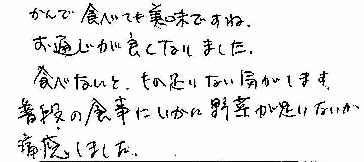 かんで食べても美味ですね.
お通じが良くなりました.
食べないと、もの足りない気がします.
普段の食事にいかに野菜が足りないか
痛感しました.